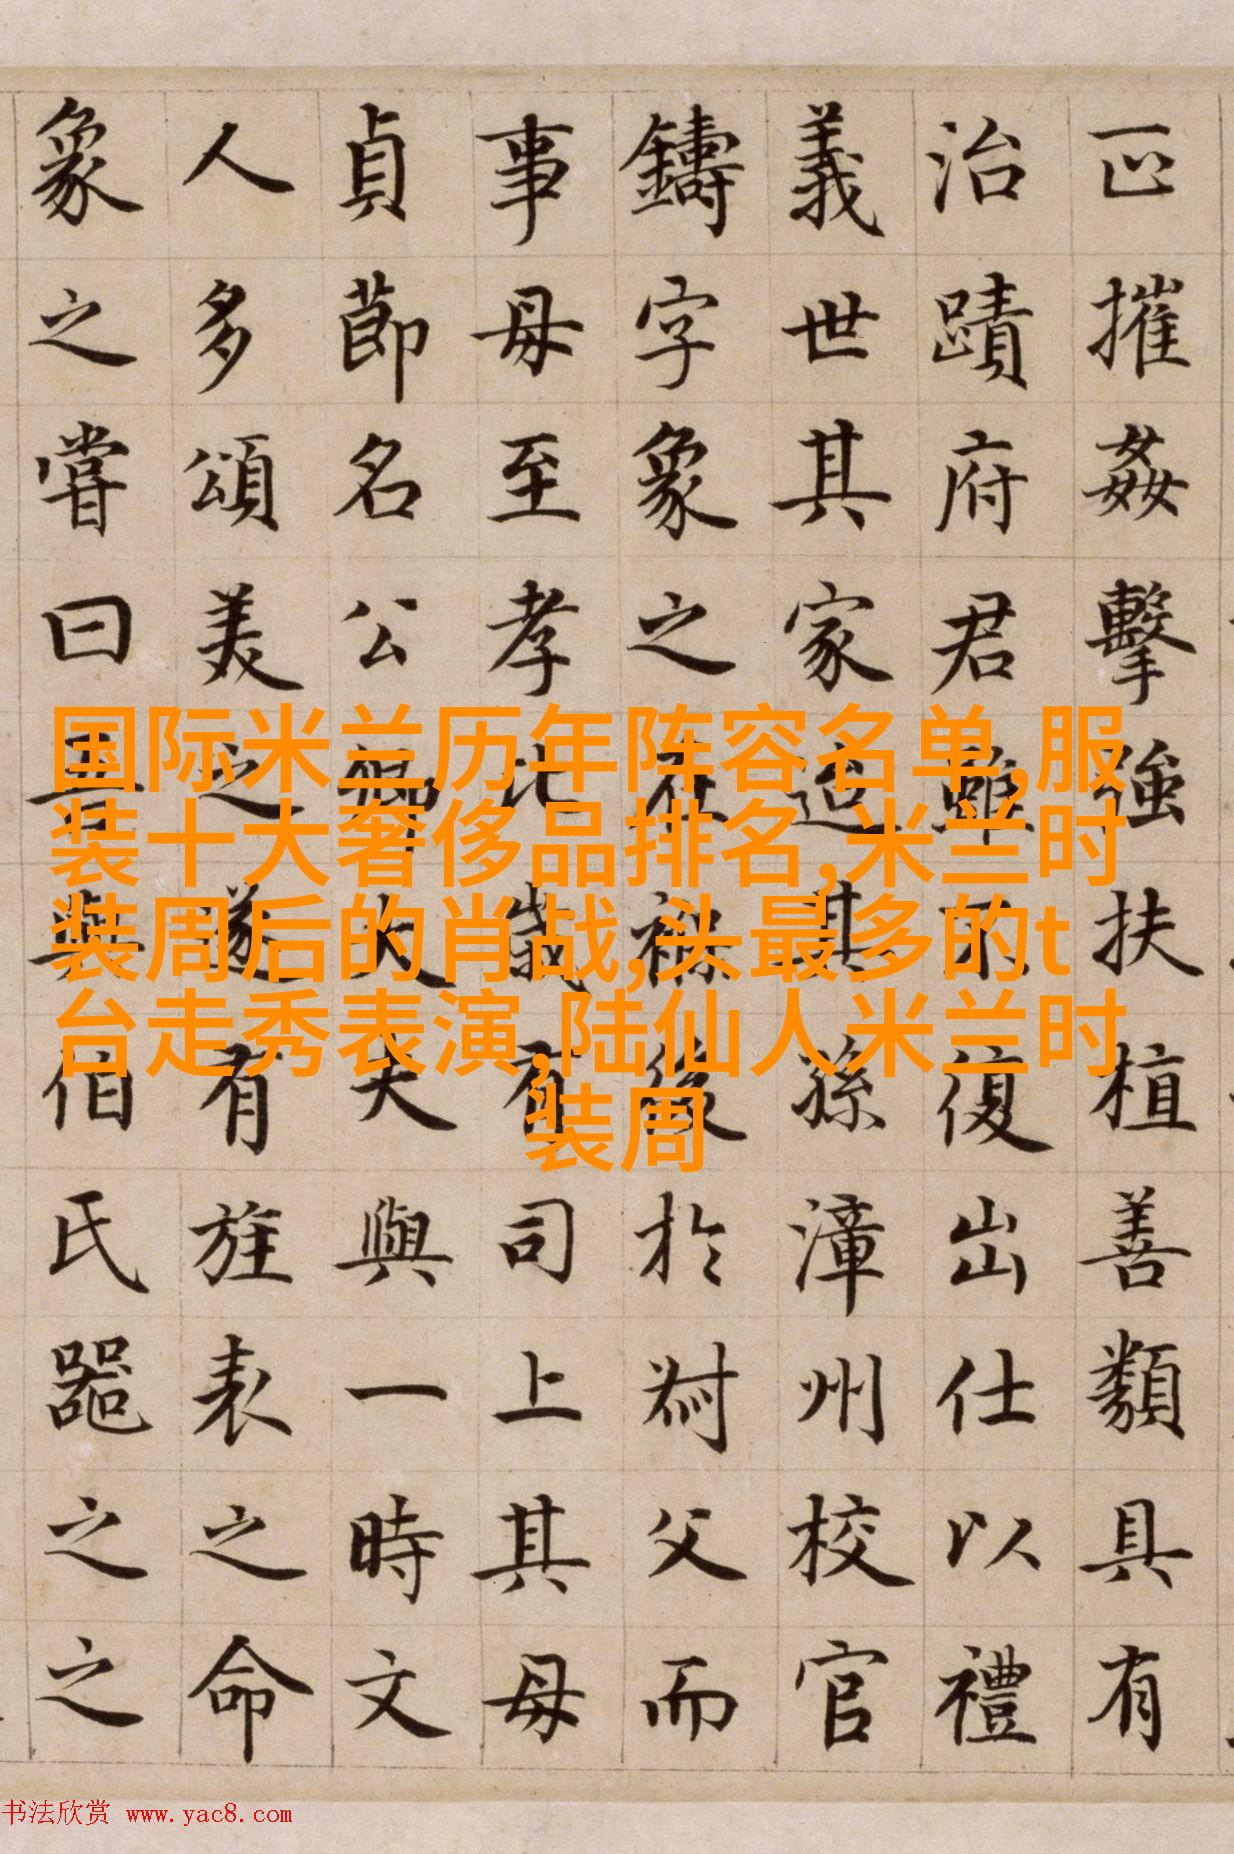 正摧姦擊強扶植善類具有
治蹟府君雖不復出仕以禮
義世其家迨其孫漳州校官
鑄字象之在褓後於父而
事母至孝比歲有司上其母
貞節名公卿大夫與一時文
人多頌美之遂有旌表之命
象之嘗曰吾與伯氏器之之
国际米兰历年阵容名单,服
装十大奢侈品排名,米兰时
装周后的肖战,头最多的t
台走秀表演,陆仙人米兰时
装周
书法欣赏 www.yac8.com